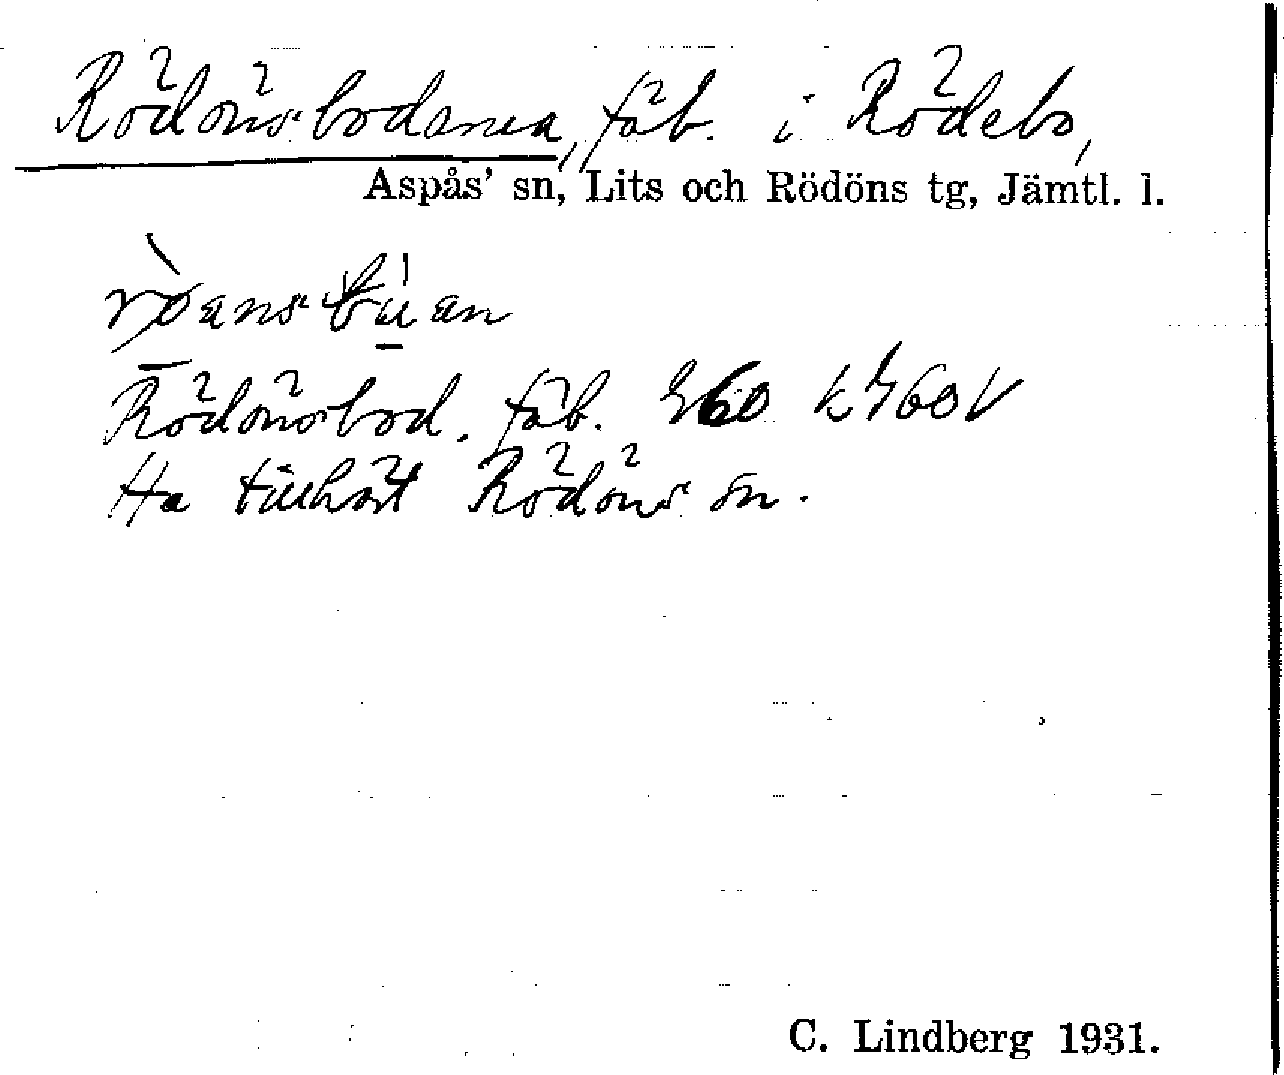 Rödönsbodarna, fäb. i Rödebo,
Aspås' sn, Lits och Rödöns tg, Jämtl. l.
Rödönsbod. fäb.
Ha tillhört Rödöns sn.
C. Lindberg 1931.